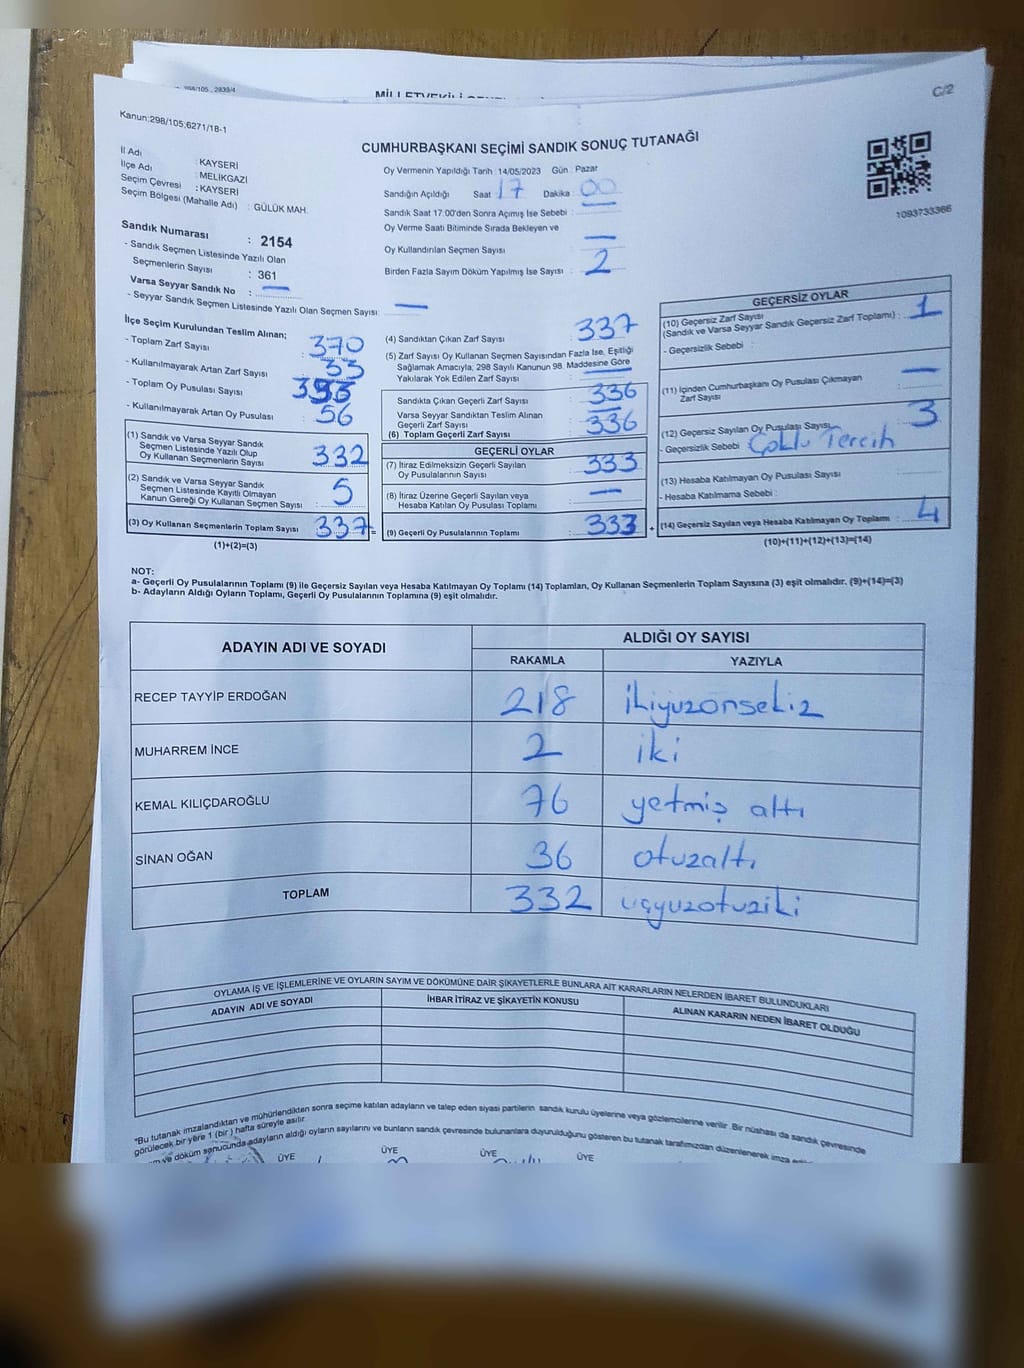 C/2
Kanun:298/105;6271/18-1
CUMHURBAŞKANI SEÇİMİ SANDIK SONUÇ TUTANAĞI
İl Adı : KAYSERİ
İlçe Adı : MELİKGAZİ
Seçim Çevresi : KAYSERİ
Seçim Bölgesi (Mahalle Adı) : GÜLÜK MAH.
Oy Vermenin Yapıldığı Tarih : 14/05/2023 Gün : Pazar
Sandığın Açıldığı Saat 17 Dakika 00
Sandık Saat 17:00'den Sonra Açımış İse Sebebi :
Oy Verme Saati Bitiminde Sırada Bekleyen ve
Oy Kullandırılan Seçmen Sayısı : —
Birden Fazla Sayım Döküm Yapılmış İse Sayısı : 2
1093733366
Sandık Numarası : 2154
- Sandık Seçmen Listesinde Yazılı Olan
Seçmenlerin Sayısı : 361
Varsa Seyyar Sandık No : —
- Seyyar Sandık Seçmen Listesinde Yazılı Olan Seçmen Sayısı: —
İlçe Seçim Kurulundan Teslim Alınan;
- Toplam Zarf Sayısı : 370
- Kullanılmayarak Artan Zarf Sayısı : 33
- Toplam Oy Pusulası Sayısı
- Kullanılmayarak Artan Oy Pusulası : 56
(1) Sandık ve Varsa Seyyar Sandık
Seçmen Listesinde Yazılı Olup
Oy Kullanan Seçmenlerin Sayısı 332
(2) Sandık ve Varsa Seyyar Sandık
Seçmen Listesinde Kayıtlı Olmayan
Kanun Gereği Oy Kullanan Seçmen Sayısı : 5
(3) Oy Kullanan Seçmenlerin Toplam Sayısı 337 =
(1)+(2)=(3)
(4) Sandıktan Çıkan Zarf Sayısı : 337
(5) Zarf Sayısı Oy Kullanan Seçmen Sayısından Fazla İse, Eşitliği
Sağlamak Amacıyla; 298 Sayılı Kanunun 98. Maddesine Göre
Yakılarak Yok Edilen Zarf Sayısı : —
Sandıkta Çıkan Geçerli Zarf Sayısı : 336
Varsa Seyyar Sandıktan Teslim Alınan
Geçerli Zarf Sayısı —
(6) Toplam Geçerli Zarf Sayısı : 336
GEÇERLİ OYLAR
(7) İtiraz Edilmeksizin Geçerli Sayılan
Oy Pusulalarının Sayısı : 333
(8) İtiraz Üzerine Geçerli Sayılan veya
Hesaba Katılan Oy Pusulası Toplamı : —
(9) Geçerli Oy Pusulalarının Toplamı : 333 +
GEÇERSİZ OYLAR
(10) Geçersiz Zarf Sayısı
(Sandık ve Varsa Seyyar Sandık Geçersiz Zarf Toplamı) : 1
- Geçersizlik Sebebi :
(11) İçinden Cumhurbaşkanı Oy Pusulası Çıkmayan
Zarf Sayısı : —
(12) Geçersiz Sayılan Oy Pusulası Sayısı 3
- Geçersizlik Sebebi : Çoklu Tercih
(13) Hesaba Katılmayan Oy Pusulası Sayısı
- Hesaba Katılmama Sebebi :
(14) Geçersiz Sayılan veya Hesaba Katılmayan Oy Toplamı : 4
(10)+(11)+(12)+(13)=(14)
NOT:
a- Geçerli Oy Pusulalarının Toplamı (9) ile Geçersiz Sayılan veya Hesaba Katılmayan Oy Toplamı (14) Toplamları, Oy Kullanan Seçmenlerin Toplam Sayısına (3) eşit olmalıdır. (9)+(14)=(3)
b- Adayların Aldığı Oyların Toplamı, Geçerli Oy Pusulalarının Toplamına (9) eşit olmalıdır.
ADAYIN ADI VE SOYADI ALDIĞI OY SAYISI
RAKAMLA YAZIYLA
RECEP TAYYİP ERDOĞAN 218 ikiyüzonsekiz
MUHARREM İNCE 2 iki
KEMAL KILIÇDAROĞLU 76 yetmiş altı
SİNAN OĞAN 36 otuzaltı
TOPLAM 332 üçyüzotuziki
OYLAMA İŞ VE İŞLEMLERİNE VE OYLARIN SAYIM VE DÖKÜMÜNE DAİR ŞİKAYETLERLE BUNLARA AİT KARARLARIN NELERDEN İBARET BULUNDUKLARI
ADAYIN ADI VE SOYADI İHBAR İTİRAZ VE ŞİKAYETİN KONUSU ALINAN KARARIN NEDEN İBARET OLDUĞU
"Bu tutanak imzalandıktan ve mühürlendikten sonra seçime katılan adayların ve talep eden siyasi partilerin sandık kurulu üyelerine veya gözlemcilerine verilir. Bir nüshası da sandık çevresinde
görülecek bir yere 1 (bir) hafta süreyle asılır
ve döküm sonucunda adayların aldığı oyların sayılarını ve bunların sandık çevresinde bulunanlara duyurulduğunu gösteren bu tutanak tarafımızdan düzenlenerek imza
ÜYE ÜYE ÜYE ÜYE